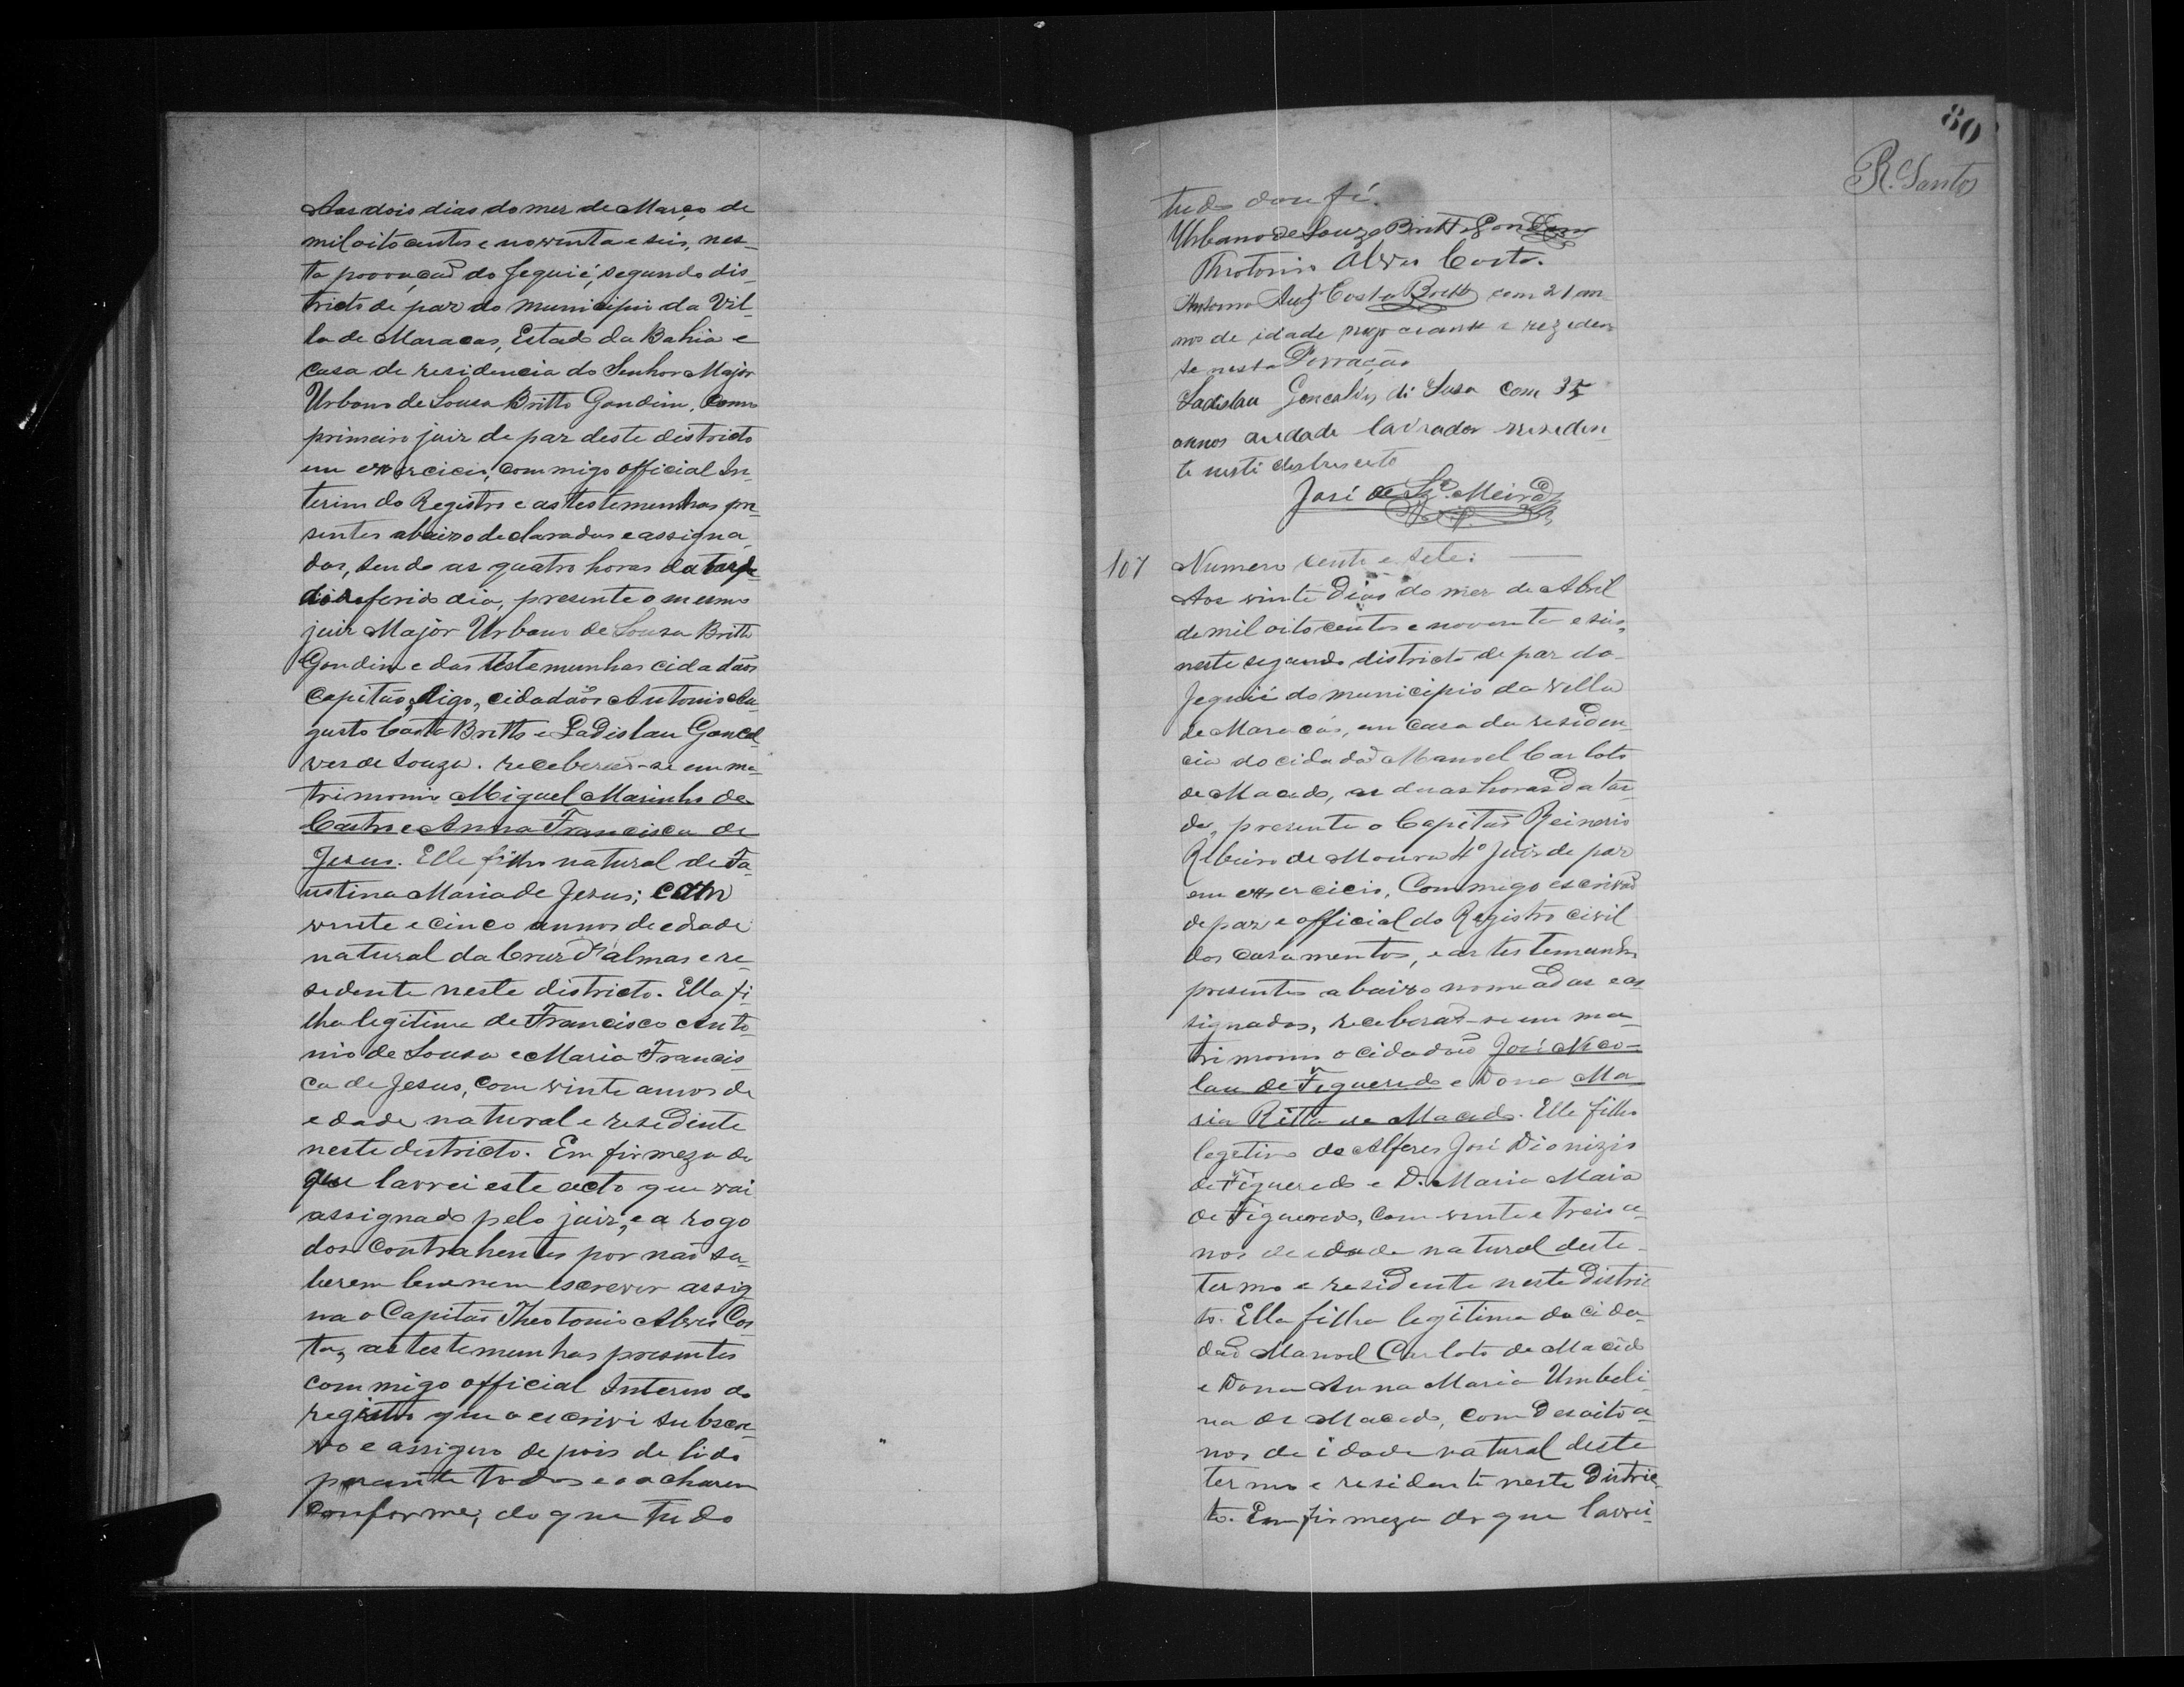 Aos dois dias do mez de Março de
mil oito centos e noventa e seis, nes-
ta povoação do Jequié, segundo dis-
tricto de paz do municipio da Vil-
la de Maracas, Estado da Bahia e
casa de residencia do Senhor Major
Urbano de Sousa Britto Gondim, como
primeiro juiz de paz deste districto
em exercicio, commigo official In-
terino do Registro e as testemunhas pre-
sentes abaixo declaradas e assigna-
das, sendo as quatro horas da tarde
do referido dia, presente o mesmo
juiz Major Urbano de Sousa Britto
Gondim e das testemunhas cidadãos
Capitão, digo, cidadãos Antonio Au-
gusto Costa Britto e Ladislau Goncal-
ves de Souza. receberão-se em ma-
trimonio Miguel Marinho de
Castro e Anna Francisca de
Jesus. Elle filho natural de Fa-
ustina Maria de Jesus; com
vinte e cinco annos de edade
natural da Cruz d'almas e re-
sedente neste districto. Ella fi-
lha legitima de Francisco Anto-
nio de Sousa e Maria Francis-
ca de Jesus, com vinte annos de
edade natural e residente
neste destricto. Em firmeza do
que lavrei este acto que vai
assignado pelo juiz, e a rogo
dos contrahentes por não sa-
berem ler nem escrever assig
na o Capitão Theotonio Alves Cos-
ta, as testemunhas presentes
commigo official Interino do
registro que o escrivi subscre-
vo e assigno depois de lido
perante todos e o acharem
conforme, do que tudo
80
R. Santos
tudo dou fé.
Urbano de Souza Britto Gondim
Theotonio Alves Costa.
Antonio Augº Costa Britto com 21 an-
nos de idade negociante e rezeden
te nesta Povoação
Ladislau Goncalves di Susa com 35
annos aedade lavrador rresedin
te nesti destrescto
José de Sza. Meira
107 Numero cento e sete:
Aos vinte dias do mez de Abril
de mil oito centos e noventa e seis,
neste segundo districto de paz do
Jequié do municipio da villa
de Maracás, em casa da residen-
cia do cidadão Manoel Carloto
de Macedo, as duas horas da tar-
de, presente o Capitão Reinerio
Ribeiro de Moura 4º Juiz de paz
em exercicio, Commigo escrivão
de paz e official do Registro civil
dos casamentos, e as testemunhas
presentes abaixo nomeadas e as
signadas, receberão-se em ma-
trimonio o cidadão José Nico-
lau de Figueredo e Dona Ma
ria Ritta de Macedo. Elle filho
legitimo do Alferes José Dionizio
de Figueredo e D. Maria Maia
de Figueredo, com vinte e treis a-
nos de edade natural deste
termo e residente neste distric
to. Ella filha legitima do cida-
dão Manoel Carloto de Macedo
e Dona Anna Maria Umbeli-
na de Macedo, com desoito a-
nos de idade natural deste
termo e residente neste Distric-
to. Em firmeza do que lavrei-